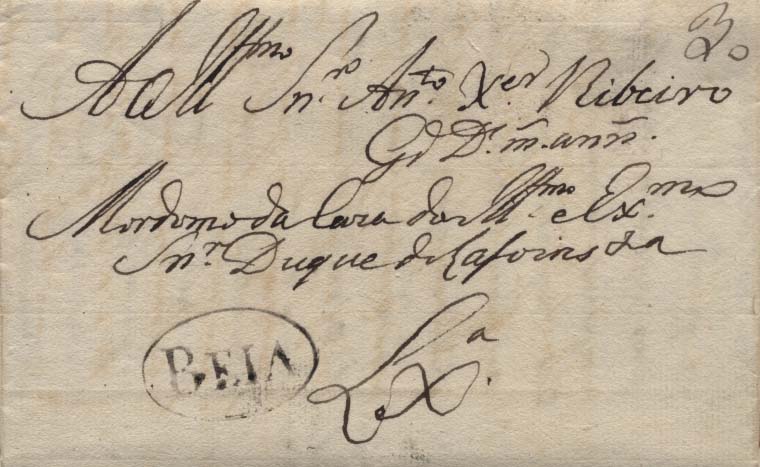 Ao Illmo Snro Anto Xer Ribeiro
Gd Ds m. ann.
Mordomo da Caza do Illmo e Exmo
Snr Duque de Lafoins &a
BEIA
Lxa